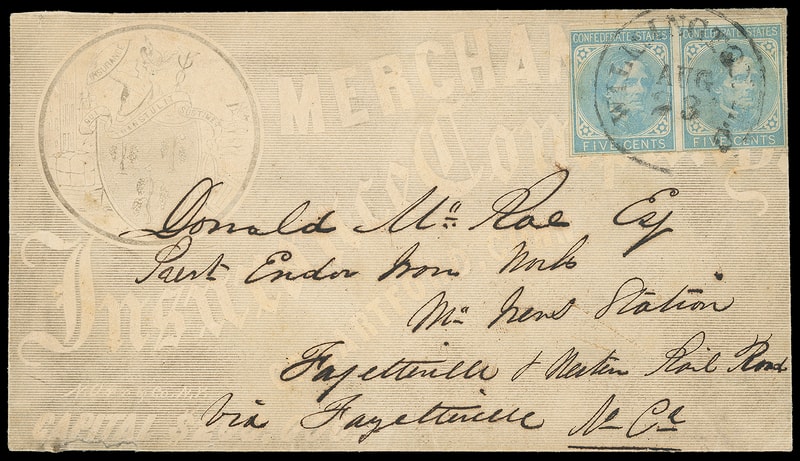 MERCHAN
Insurance Company
CONFEDERATE STATES
FIVE CENTS
CONFEDERATE STATES
FIVE CENTS
WILMINGTON
AUG
INSURANCE
SUSTINET
Donald Mc. Rae Esq
Prest Endor Iron Works
Mc Ivers Station
Fayetteville & Western Rail Road
Via Fayetteville No Ca
CAPITAL